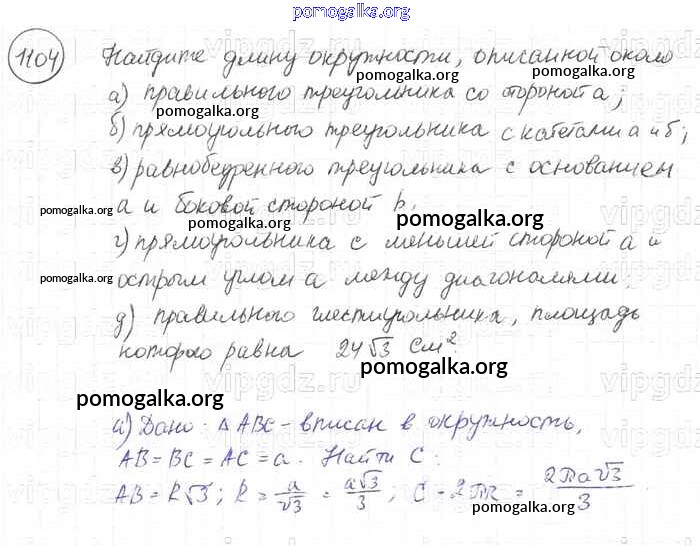 pomogalka.org
1104 Найдите длину окружности, описанной около
pomogalka.org pomogalka.org
а) правильного треугольника со стороной а;
pomogalka.org
б) прямоугольного треугольника с катетами а и б;
в) равнобедренного треугольника с основанием
pomogalka.org
а и боковой стороной b,
pomogalka.org pomogalka.org pomogalka.org
г) прямоугольника с меньшей стороной а и
pomogalka.org
острым углом а между диагоналями;
pomogalka.org
д) правильного шестиугольника, площадь
которого равна 24√3 см².
pomogalka.org
pomogalka.org
а) Дано: △ ABC - вписан в окружность,
pomogalka.org
AB = BC = AC = a. Найти C.
AB = R√3; R = a/√3 = a√3/3; C - 2πR = 2πa√3/3
pomogalka.org